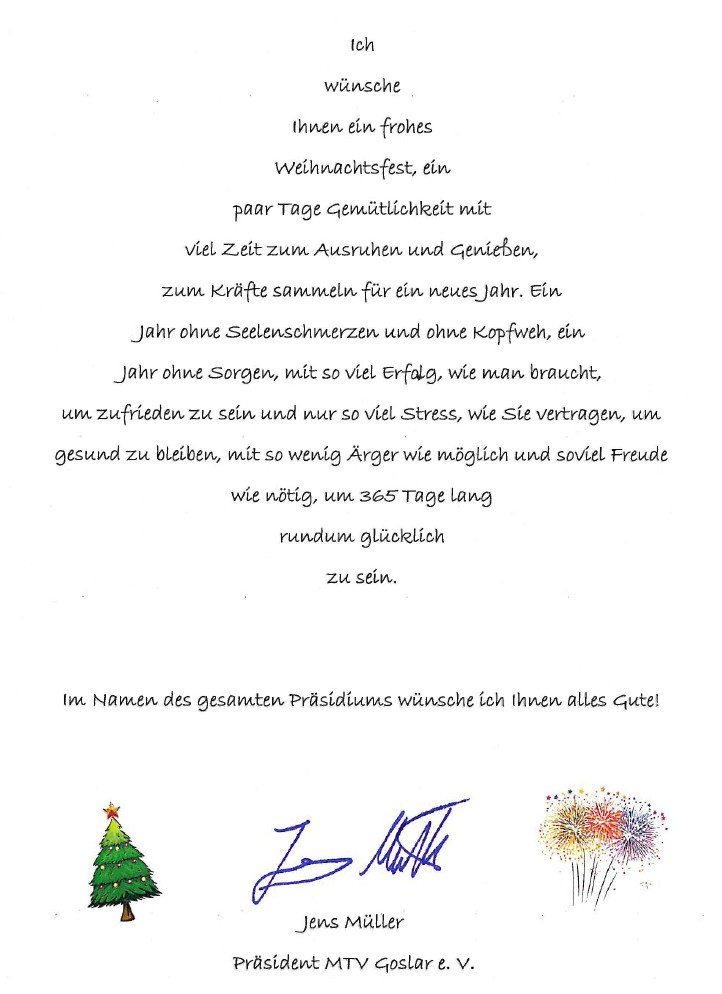 Ich
wünsche
Ihnen ein frohes
Weihnachtsfest, ein
paar Tage Gemütlichkeit mit
viel Zeit zum Ausruhen und Genießen,
zum Kräfte sammeln für ein neues Jahr. Ein
Jahr ohne Seelenschmerzen und ohne Kopfweh, ein
Jahr ohne Sorgen, mit so viel Erfolg, wie man braucht,
um zufrieden zu sein und nur so viel Stress, wie Sie vertragen, um
gesund zu bleiben, mit so wenig Ärger wie möglich und soviel Freude
wie nötig, um 365 Tage lang
rundum glücklich
zu sein.
Im Namen des gesamten Präsidiums wünsche ich Ihnen alles Gute!
Jens Müller
Jens Müller
Präsident MTV Goslar e. V.